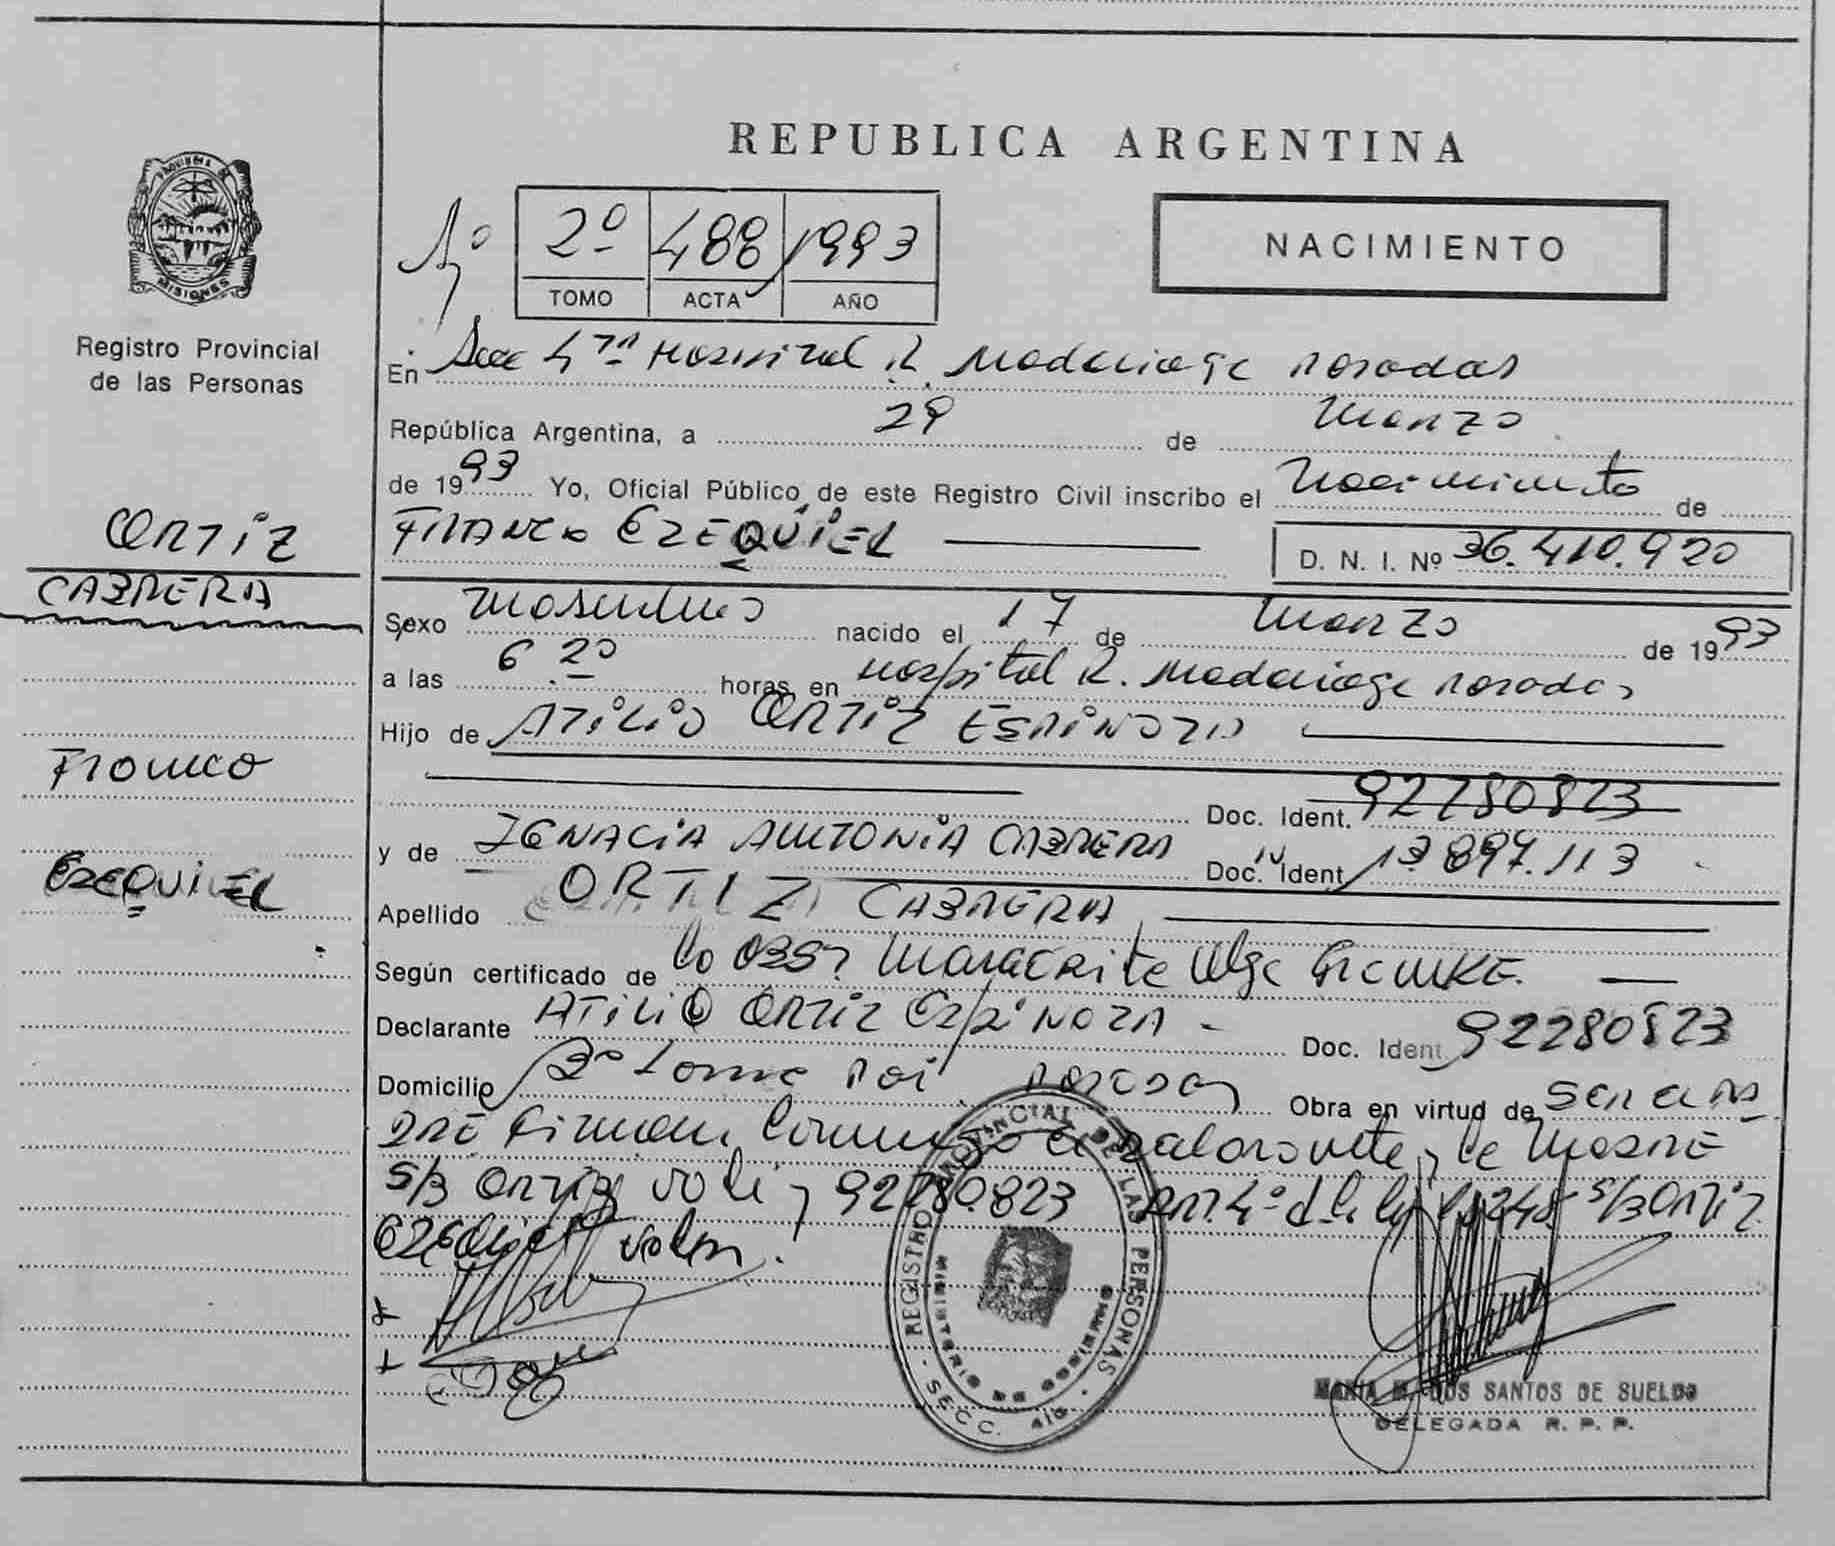 REPUBLICA ARGENTINA
PROVINCIA DE
MISIONES
Registro Provincial
de las Personas
ORTIZ
CABRERA
FRANCO
EZEQUIEL
2º 488 1993
TOMO ACTA AÑO
NACIMIENTO
En Secc 4ta Hospital R. Madariaga Posadas
República Argentina, a 29 de Marzo
de 1993 Yo, Oficial Público de este Registro Civil inscribo el Nacimiento de
FRANCO EZEQUIEL D. N. I. Nº 36.410.920
Sexo Masculino nacido el 17 de Marzo de 1993
a las 6 20 horas en Hospital R. Madariaga Posadas
Hijo de ATILIO ORTIZ ESPINOZA
Doc. Ident. 92280823
y de IGNACIA ANTONIA CABRERA Doc. Ident 13.897.113
Apellido ORTIZ CABRERA
Según certificado de Margarita Olga
Declarante ATILIO ORTIZ ESPINOZA - Doc. Ident 92280823
Domicilio Posadas Obra en virtud de ser el
PADRE firman conmigo el y la MADRE
S/B ORTIZ vale y 92280.823 Art. 4º de la ley S/B ORTIZ
EZEQUIEL valen.
REGISTRO PROVINCIAL DE LAS PERSONAS
MINISTERIO DE GOBIERNO
SECC. 4ta
MARIA M. DOS SANTOS DE SUELDO
DELEGADA R. P. P.